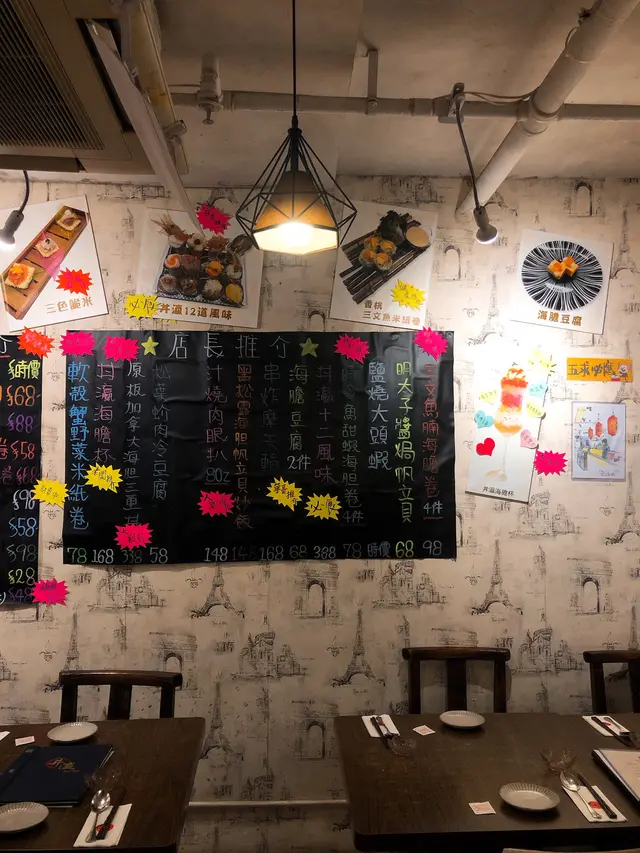 三色脆米
必食
丼瀛12道風味
香桃
三文魚米紙卷
海膽豆腐
店長推介
三文魚腩海膽卷 4件 98
明太子醬焗帆立貝 68
鹽燒大頭蝦 時價
魚甜蝦海膽卷 4件 78
丼瀛十二風味 388
海膽豆腐 2件 68
串炸 168
黑松露海膽帆立貝炒飯 148
汁燒肉眼扒 8oz 148
松葉蟹肉冷豆腐 58
原板加拿大海膽三重 338
丼瀛海膽杯 168
軟殼蟹野菜米紙卷 78
介
時價
$68
$88
$58
$68
$98
$58
$98
$28
$48
五求必應
丼瀛海膽杯